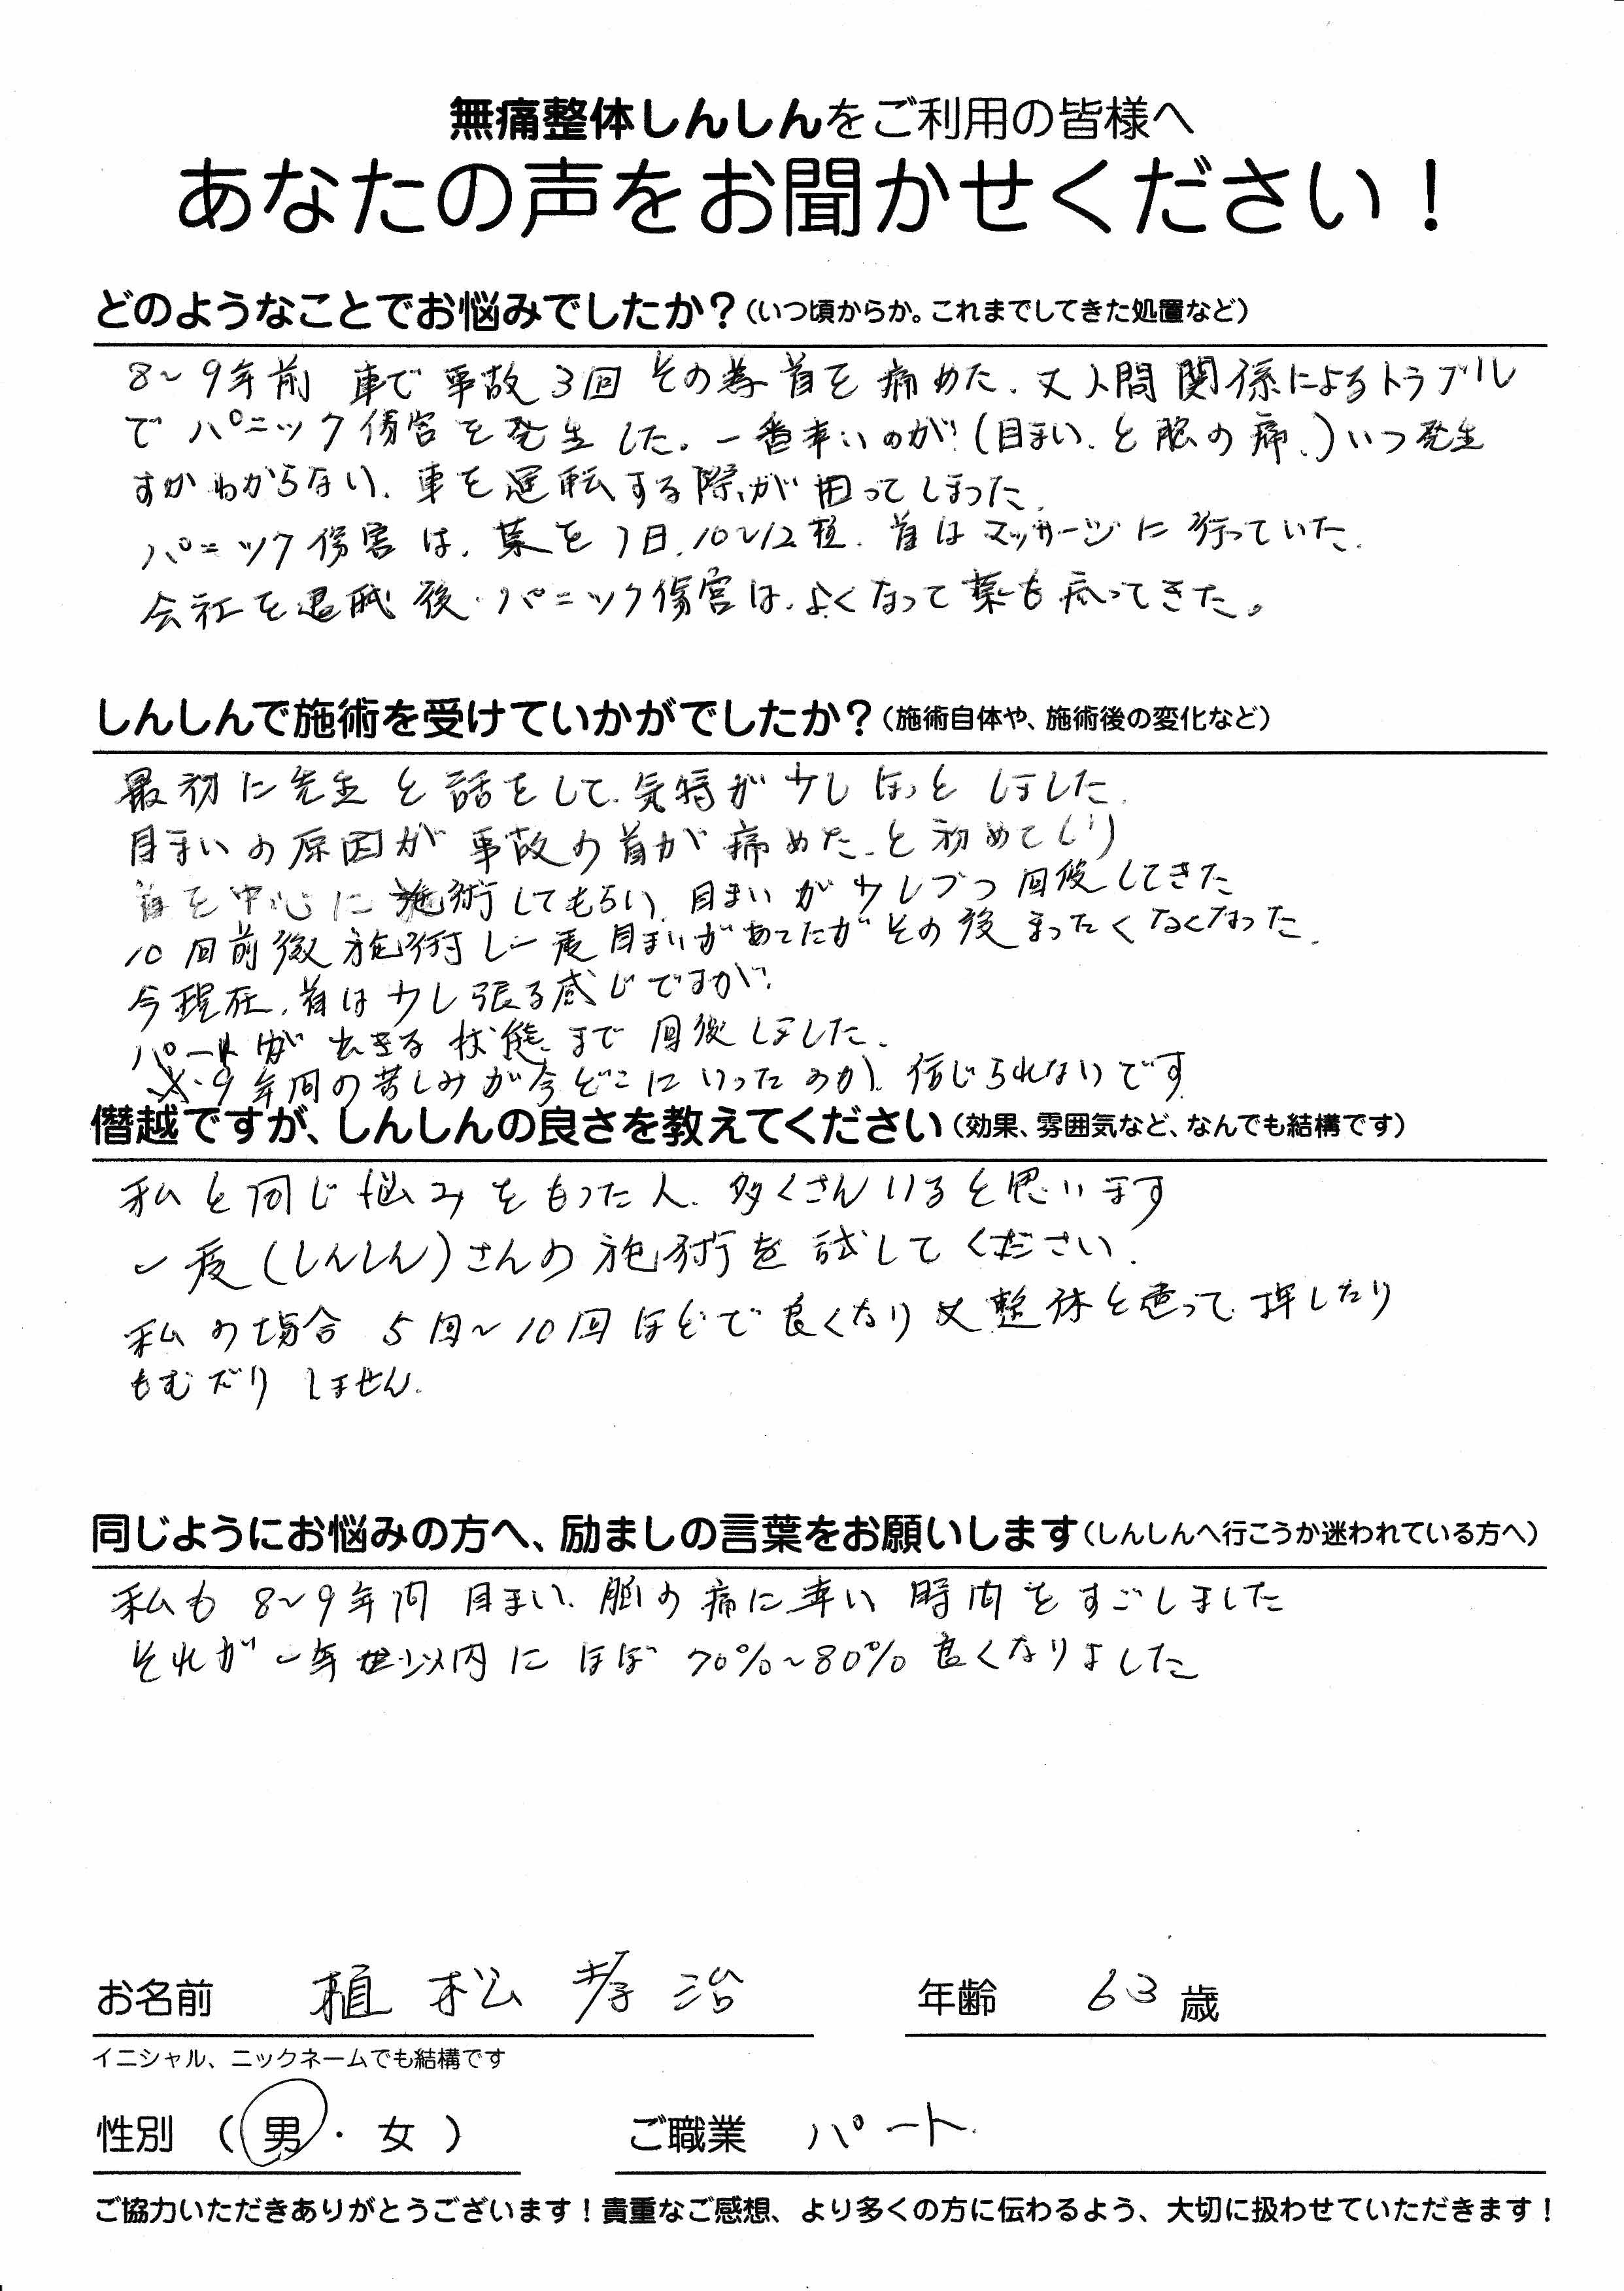 無痛整体しんしんをご利用の皆様へ
あなたの声をお聞かせください！
どのようなことでお悩みでしたか？（いつ頃からか。これまでしてきた処置など）
8～9年前 車で事故3回 その為首を痛めた、又人間関係によるトラブル
でパニック傷害を発生した。一番辛いのが（目まい、と脳の痛、）いつ発生
すかわからない、車を運転する際が困ってしまった、
パニック傷害は、薬を1日、10～12粒、首はマッサージに行っていた、
会社を退職後、パニック傷害は、よくなって薬も減ってきた。
しんしんで施術を受けていかがでしたか？（施術自体や、施術後の変化など）
最初に先生と話をして、気持が少しほっとしました、
目まいの原因が事故の首が痛めた、と初めてしり
首を中心に施術してもらい、目まいが少しづつ回復してきた
10回前後施術し一度目まいがあったがその後まったくなくなった、
今現在、首は少し張る感じですが、
パートが出きる状態まで回復しました、
9年間の苦しみが今どこにいったのか、信じられないです、
僭越ですが、しんしんの良さを教えてください（効果、雰囲気など、なんでも結構です）
私と同じ悩みをもった人、多くさんいると思います
一度（しんしん）さんの施術を試してください、
私の場合 5回～10回ほどで良くなり又整体と違って、押したり
もむだりしません、
同じようにお悩みの方へ、励ましの言葉をお願いします（しんしんへ行こうか迷われている方へ）
私も 8～9年間 目まい、脳の痛に辛い 時間をすごしました
それが一年以内にほぼ 70％～80％ 良くなりました
お名前 植松孝治 年齢 63歳
イニシャル、ニックネームでも結構です
性別 （ 男 ・ 女 ） ご職業 パート
ご協力いただきありがとうございます！貴重なご感想、より多くの方に伝わるよう、大切に扱わせていただきます！